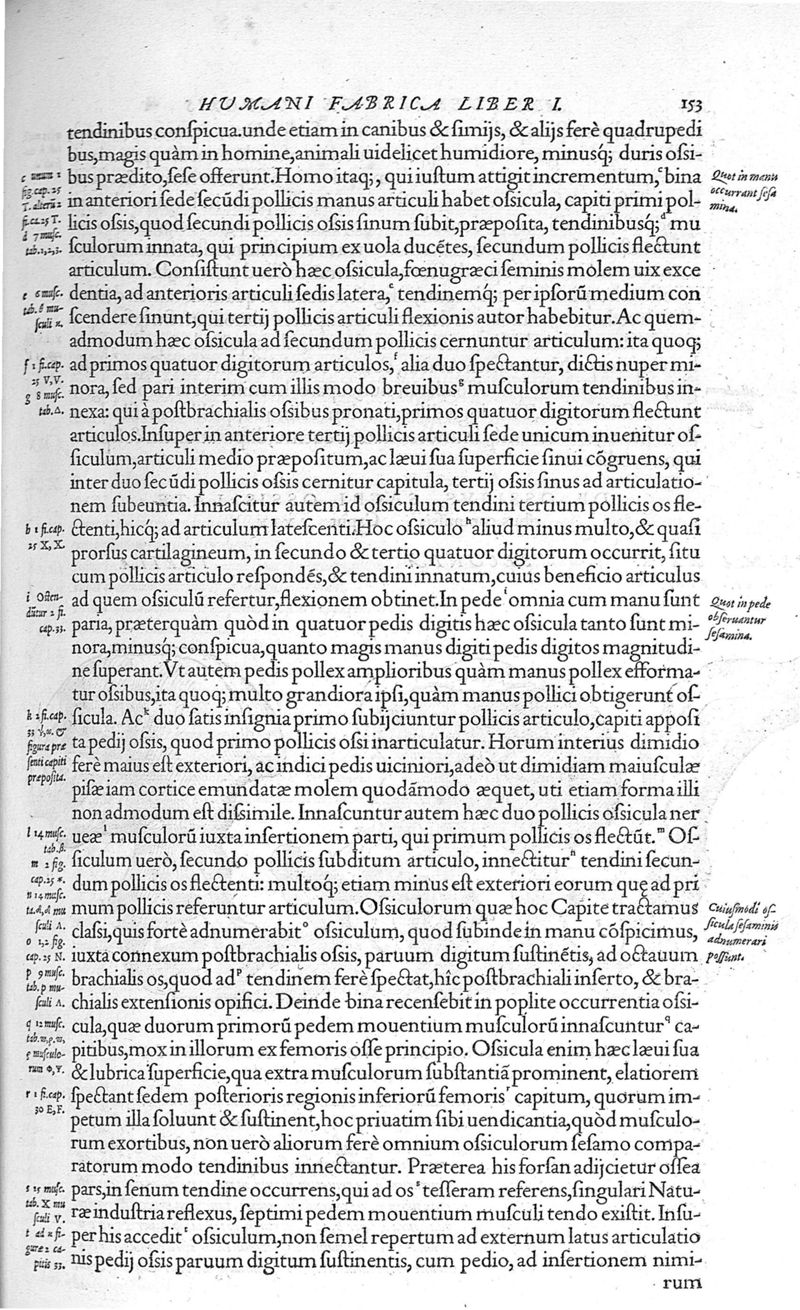 HUMANI FABRICA LIBER I. 153
tendinibus conſpicua.unde etiam in canibus & ſimijs, & alijs ferè quadrupedi
bus,magis quàm in homine,animali uidelicet humidiore, minusq́; duris oſsi-
bus prædito,ſeſe offerunt.Homo itaq;, qui iuſtum attigit incrementum,ᶜ bina
in anteriori ſede ſecũdi pollicis manus articuli habet oſsicula, capiti primi pol-
licis oſsis,quod ſecundi pollicis oſsis ſinum ſubit,præpoſita, tendinibusq́;ᵈ mu
ſculorum innata, qui principium ex uola ducẽtes, ſecundum pollicis flectunt
articulum. Conſiſtunt uerò hæc oſsicula,fœnugræci ſeminis molem uix exce
dentia, ad anterioris articuli ſedis latera,ᵉ tendinemq́; per ipſorũ medium con
ſcendere ſinunt,qui tertij pollicis articuli flexionis autor habebitur. Ac quem-
admodum hæc oſsicula ad ſecundum pollicis cernuntur articulum: ita quoq;
ad primos quatuor digitorum articulos,ᶠ alia duo ſpectantur, dictis nuper mi-
nora, ſed pari interim cum illis modo breuibusᵍ muſculorum tendinibus in-
nexa: qui à poſtbrachialis oſsibus pronati,primos quatuor digitorum flectunt
articulos.Inſuper in anteriore tertij pollicis articuli ſede unicum inuenitur oſ-
ſiculum,articuli medio præpoſitum,ac læui ſua ſuperficie ſinui cõgruens, qui
inter duo ſecũdi pollicis oſsis cernitur capitula, tertij oſsis ſinus ad articulatio-
nem ſubeuntia. Innaſcitur autem id oſsiculum tendini tertium pollicis os fle-
ctenti,hicq́; ad articulum lateſcenti.Hoc oſsiculo ʰ aliud minus multo,& quaſi
prorſus cartilagineum, in ſecundo & tertio quatuor digitorum occurrit, ſitu
cum pollicis articulo reſpondẽs,& tendini innatum,cuius beneficio articulus
ad quem oſsiculũ refertur,flexionem obtinet.In pede ⁱ omnia cum manu ſunt
paria, præterquàm quòd in quatuor pedis digitis hæc oſsicula tanto ſunt mi-
nora,minusq́; conſpicua,quanto magis manus digiti pedis digitos magnitudi-
ne ſuperant.Vt autem pedis pollex amplioribus quàm manus pollex efforma-
tur oſsibus,ita quoq; multo grandiora ipſi,quàm manus pollici obtigerunt oſ-
ſicula. Acᵏ duo ſatis inſignia primo ſubijciuntur pollicis articulo,capiti appoſi
ta pedij oſsis, quod primo pollicis oſsi inarticulatur. Horum interius dimidio
ferè maius eſt exteriori, ac indici pedis uiciniori,adeò ut dimidiam maiuſculæ
piſæ iam cortice emundatæ molem quodãmodo æquet, uti etiam forma illi
non admodum eſt diſsimile. Innaſcuntur autem hæc duo pollicis oſsicula ner
ueæˡ muſculorũ iuxta inſertionem parti, qui primum pollicis os flectũt.ᵐ Oſ-
ſiculum uerò, ſecundo pollicis ſubditum articulo, innectiturⁿ tendini ſecun-
dum pollicis os flectenti: multoq́; etiam minus eſt exteriori eorum quę ad pri
mum pollicis referuntur articulum.Oſsiculorum quæ hoc Capite tractamus
claſsi,quis fortè adnumerabitᵒ oſsiculum, quod ſubinde in manu cõſpicimus,
iuxta connexum poſtbrachialis oſsis, paruum digitum ſuſtinẽtis, ad octauum
brachialis os,quod adᵖ tendinem ferè ſpectat,hîc poſtbrachiali inſerto, & bra-
chialis extenſionis opifici. Deinde bina recenſebit in poplite occurrentia oſsi-
cula,quæ duorum primorũ pedem mouentium muſculorũ innaſcuntur ᑫ ca-
pitibus,mox in illorum ex femoris oſſe principio. Oſsicula enim hæc læui ſua
& lubrica ſuperficie,qua extra muſculorum ſubſtantiã prominent, elatiorem
ſpectant ſedem poſterioris regionis inferiorũ femorisʳ capitum, quorum im-
petum illa ſoluunt & ſuſtinent,hoc priuatim ſibi uendicantia,quòd muſculo-
rum exortibus, non uerò aliorum ferè omnium oſsiculorum ſeſamo compa-
ratorum modo tendinibus innectantur. Præterea his forſan adijcietur oſſea
pars,in ſenum tendine occurrens,qui ad osˢ teſſeram referens,ſingulari Natu-
ræ induſtria reflexus, ſeptimi pedem mouentium muſculi tendo exiſtit. Inſu-
per his accedit ᵗ oſsiculum,non ſemel repertum ad externum latus articulatio
nis pedij oſsis paruum digitum ſuſtinentis, cum pedio, ad inſertionem nimi-
rum
Quot in manu
occurrant ſeſa
mina.
Quot in pede
obſeruantur
ſeſamina.
Cuiuſmodi oſ-
ſicula ſeſaminis
adnumerari
poſſunt.
fig.cap. 25
d 7 muſc.
tab.1,2,3.
e 6 muſc.
f 1 fi.cap.
25 V,V.
g 8 muſc.
tab.Δ.
h 1 fi.cap.
25 X, X.
i Oſten-
dũtur 2 fi.
cap.33.
k 2 fi.cap.
figura præ
ſenti capiti
præpoſita.
l 14 muſc.
m 2 fig.
cap.25 *.
n 14 muſc.
o 1,2 fig.
cap. 25 N.
p 9 muſc.
tab. p mu-
ſculi Λ.
q 12 muſc.
ę muſculo-
rum Φ,Υ.
r 1 fi.cap.
30 E,F.
s 15 muſc.
tab. X mu
ſculi V.
t ad x fi-
guræ 2 ca-
pitis 33.